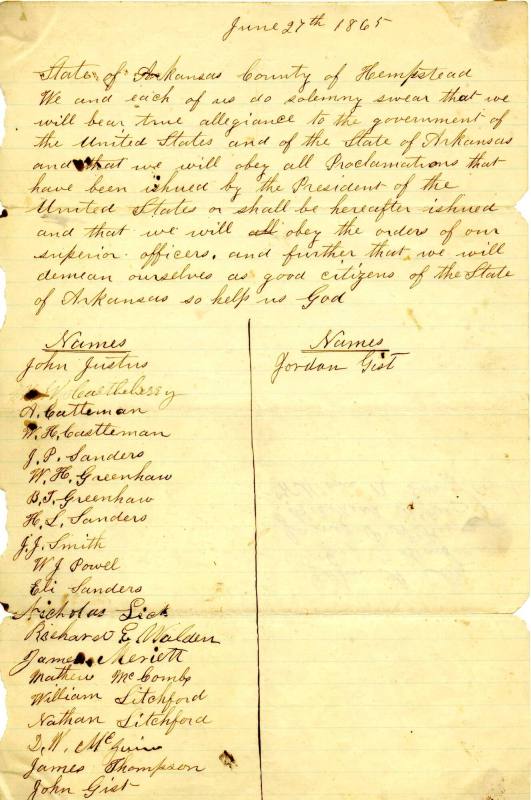 June 27th 1865
State of Arkansas County of Hempstead
We and each of us do solemny swear that we
will bear true allegiance to the government of
the United States and of the State of Arkansas
and that we will obey all Proclamations that
have been ishued by the President of the
United States or shall be hereafter ishued
and that we will all obey the orders of our
superior officers, and further that we will
demean ourselves as good citizens of the State
of Arkansas so help us God
Names
John Justus
W. Castleberry
A. Catteman
W. H. Castleman
J. P. Sanders
W. H. Greenhaw
B. T. Greenhaw
H. L. Sanders
J. J. Smith
W J Powel
Eli Sanders
Nicholas
Richard E Walden
James Meriett
Mathew McCombs
William Litchford
Nathan Litchford
McGuire
James Thompson
John Gist
Names
Jordan Gist